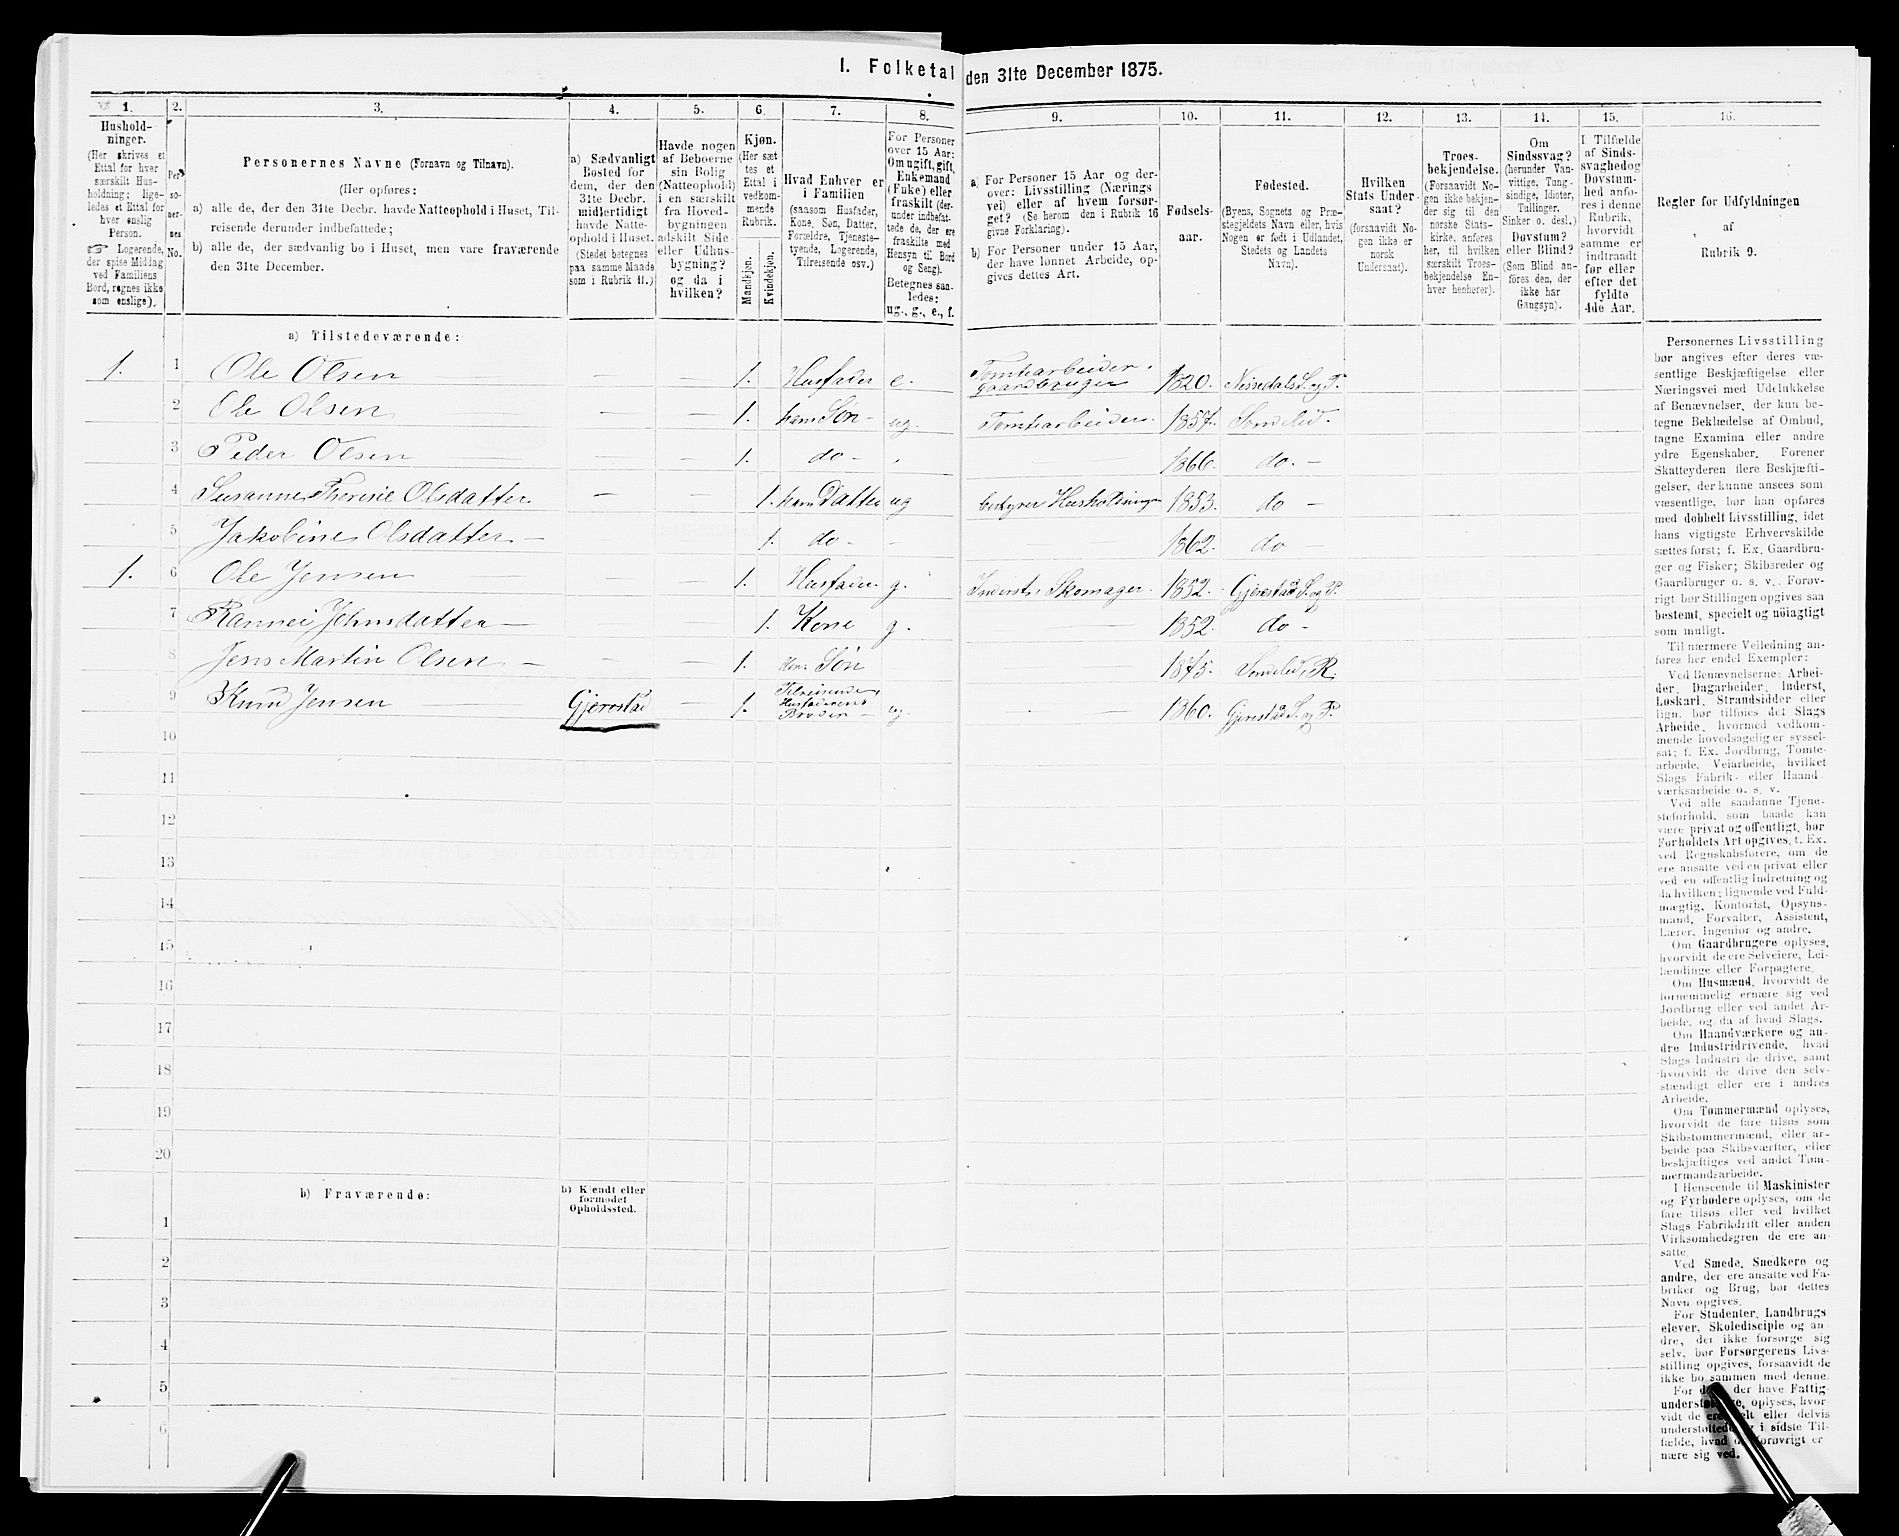 I. Folketal den 31te December 1875.
1.
2.
3.
4.
5.
6.
7.
8.
9.
10.
11.
12.
13.
14.
15.
16.
Hushold-
ninger.
(Her skrives et
Ettal for hver
særskilt Hus-
holdning; lige-
ledes et Ettal for
hver enslig
Person.
☞ Logerende,
der spise Middag
ved Familiens
Bord, regnes ikke
som enslige).
Per-
so-
ner-
nes
No.
Personernes Navne (Fornavn og Tilnavn).
(Her opføres:
a) alle de, der den 31te Decbr. havde Natteophold i Huset, Til-
reisende derunder indbefattede;
b) alle de, der sædvanlig bo i Huset, men vare fraværende
den 31te December.
a) Sædvanligt
Bosted for
dem, der den
31te Decbr.
midlertidigt
havde Natte-
ophold i Huset.
(Stedet betegnes
paa samme Maade
som i Rubrik 11.)
Havde nogen
af Beboerne
sin Bolig
(Natteophold)
i en særskilt
fra Hoved-
bygningen
adskilt Side-
eller Udhus-
bygning?
og da i
hvilken?
Kjøn.
(Her sæt-
tes et
Ettal i
vedkom-
mende
Rubrik.
Mandkjøn.
Kvindekjøn.
Hvad Enhver er
i Familien
(saasom Husfader,
Kone, Søn, Datter,
Forældre, Tjeneste-
tyende, Logerende,
Tilreisende osv.)
For Personer
over 15 Aar:
Om ugift, gift,
Enkemand
(Enke) eller
fraskilt (der-
under indbefat-
tede de, der ere
fraskilte med
Hensyn til Bord
og Seng).
Betegnes saa-
ledes:
ug., g., e., f.
a) For Personer 15 Aar og der-
over: Livsstilling (Nærings
vei) eller af hvem forsør-
get? (Se herom den i Rubrik 16
givne Forklaring).
b) For Personer under 15 Aar,
der have lønnet Arbeide, op-
gives dettes Art.
Fødsels-
aar.
Fødested.
(Byens, Sognets og Præ-
stegjeldets Navn eller, hvis
Nogen er født i Udlandet,
Stedets og Landets
Navn).
Hvilken
Stats Under-
saat?
(forsaavidt No-
gen ikke er
norsk
Undersaat).
Troes-
bekjendelse.
(Forsaavidt No-
gen ikke bekjen-
der sig til den
norske Stats-
kirke, anføres
her, til hvilken
særskilt Troes-
bekjendelse En-
hver henhører).
Om
Sindssvag?
(herunder Van-
vittige, Tung-
sindige, Idioter,
Tullinger,
Sinker o. desl.)
Døvstum?
eller Blind?
(Som Blind an-
føres den, der
ikke har
Gangsyn).
I Tilfælde
af Sinds-
svaghed og
Døvstum-
hed anfø-
res i denne
Rubrik,
hvorvidt
samme er
indtraadt
før eller
efter det
fyldte
4de Aar.
Regler for Udfyldningen
af
Rubrik 9.
a) Tilstedeværende:
1. 1 Ole Olsen — — 1. Husfader e. Tomtearbeider, gaardbruger 1820. Nissedals S. og P.
2 Ole Olsen — — 1. hans Søn ug. Tomtearbeider. 1857. Søndeled.
3 Peder Olsen — — 1. do — 1866. do. —
4 Susanne Therese Olsdatter — — 1. hans Datter ug bestyrer Husholdningen 1853. do —
5 Jakobine Olsdatter — 1. do — — 1862. do —
1. 6 Ole Jensen — — 1. Husfader g. Inderst, Skomager. 1852. Gjerestad S. og P.
7 Johnsdatter — 1. Kone g. 1852. do —
8 Jens Martin Olsen — — — 1. Hans Søn 1875. Søndeled, R.
9 Knud Jensen Gjerestad — 1. Tilreisende, Husfaderens Broder — ug. 1860. Gjerestad S. og P.
10
11
12
13
14
15
16
17
18
19
20
b) Fraværende:
b) Kjendt eller
formodet
Opholdssted.
1
2
3
4
5
6
Personernes Livsstilling
bør angives efter deres væ-
sentlige Beskjæftigelse eller
Næringsvei med Udelukkelse
af Benævnelser, der kun be-
tegne Beklædelse af Ombud,
tagne Examina eller andre
ydre Egenskaber. Forener
Skatteyderen flere Beskjæfti-
gelser, der kunne ansees som
væsentlige, bør han opføres
med dobbelt Livsstilling, idet
hans vigtigste Erhvervskilde
sættes først; f. Ex. Gaardbru-
ger og Fisker; Skibsreder og
Gaardbruger o. s. v. Forøv-
rigt bør Stillingen opgives saa
bestemt, specielt og nøiagtigt
som muligt.
Til nærmere Veiledning an-
føres her endel Exempler:
Ved Benævnelserne: Arbei-
der, Dagarbeider, Inderst,
Løskarl, Strandsidder eller
lign. bør tilføies det Slags
Arbeide, hvormed vedkom-
mende hovedsagelig er syssel-
sat; f. Ex. Jordbrug, Tomte-
arbeide, Veiarbeide, hvilket
Slags Fabrik- eller Haand
værksarbeide o. s. v.
Ved alle saadanne Tjene-
steforhold, som baade kan
være privat og offentligt, bør
Forholdets Art opgives, t. Ex.
ved Regnskabsførere, om de
ere ansatte ved en privat eller
ved en offentlig Indretning og
da hvilken; lignende ved Fuld-
mægtig, Kontorist, Opsyns-
mand, Forvalter, Assistent,
Lærer, Ingeniør og andre.
Om Gaardbrugere oplyses,
hvorvidt de ere Selveiere, Lei-
lændinge eller Forpagtere.
Om Husmænd, hvorvidt de
fornemmelig ernære sig ved
Jordbrug eller ved andet Ar-
beide, og da af hvad Slags.
Om Haandværkere og an-
dre Industridrivende, hvad
Slags Industri de drive, samt
hvorvidt de drive den selv-
stændigt eller ere i andres
Arbeide.
Om Tømmermænd oplyses,
hvorvidt de fare tilsøs som
Skibstømmermænd, eller ar-
beide paa Skibsværfter, eller
beskjæftiges ved andet Tøm-
mermandsarbeide.
I Henseende til Maskinister
og Fyrbødere oplyses, om de
fare tilsøs eller ved hvilket
Slags Fabrikdrift eller anden
Virksomhedsgren de ere an-
satte.
Ved Smede, Snedkere og
andre, der ere ansatte ved Fa-
briker og Brug, bør dettes
Navn opgives.
For Studenter, Landbrugs
elever, Skoledisciple og an-
dre, der ikke forsørge sig
selv, bør Forsørgerens Livs-
stilling opgives, forsaavidt de
ikke bo sammen med denne.
For der have Fattig-
oplyses, hvor-
vidt de eller delvis
i sidste Til-
fælde, hvad forøvrigt er-
nære sig ved.